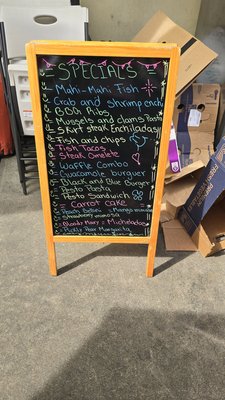 = SPECIAL'S =
Mahi-Mahi Fish
Crab and shrimp ench
BBQ Ribs
Mussels and clams Pasta
Skirt steak Enchiladas
Fish and chips
Fish Tacos
Steak Omelete
Waffle Combo
Guacamole burguer
Black and Blue Burger
Pesto Pasta
Pesto Sandwich
= Carrot cake =
Peach Bellini = Mango mimosa
Strawberry mimosa
Bloody Mary = Micheladas
Prickly Pear Margarita